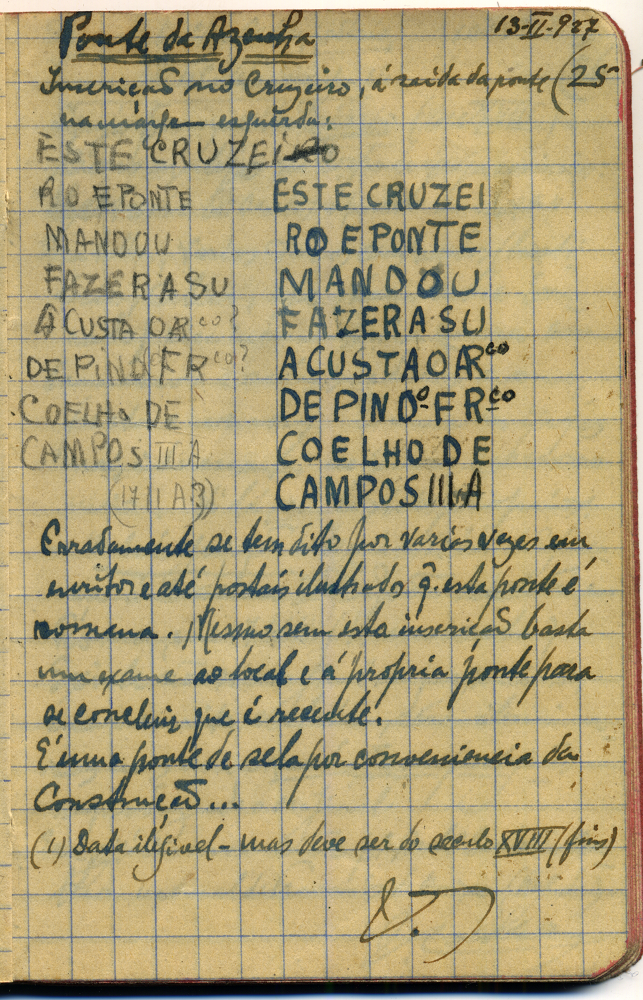 13-II-927
Ponte da Azenha
Inscrição no Cruzeiro, á saida da ponte (25
na márgem esquerda:
ESTE CRUZEIRO
RO E PONTE
MANDOU
FAZER A SU
A CUSTA O AR co?
DE PINDº FR co?
COELHO DE
CAMPOS III A
(1711 A?)
ESTE CRUZEI
RO E PONTE
MANDOU
FAZER A SU
A CUSTA O AR co
DE PIND o FR co
COELHO DE
CAMPOS III A
Erradamente se tem dito por varias vezes em
escritos e até postais ilustrados q̂. esta ponte é
romana. Mesmo sem esta inscrição basta
um exame ao local e á propria ponte para
se concluir que é recente.
E' uma ponte de sela por conveniencia da
Construção...
(1) Data ilegivel - mas deve ser do seculo XVIII (fins)